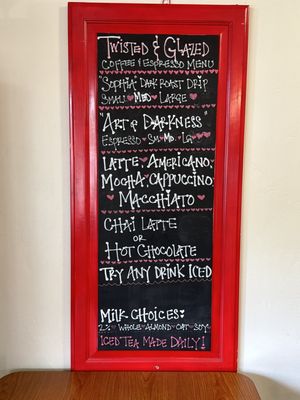 Twisted & Glazed
Coffee & Espresso Menu
"Sophia" Dark Roast Drip
Small Med Large
"Art & Darkness"
Espresso - Sm Md Lg
Latte, Americano,
Mocha, Cappuccino,
Macchiato
Chai Latte
or
Hot Chocolate
Try Any Drink Iced
Milk Choices:
2% Whole Almond Oat Soy
Iced Tea Made Daily!